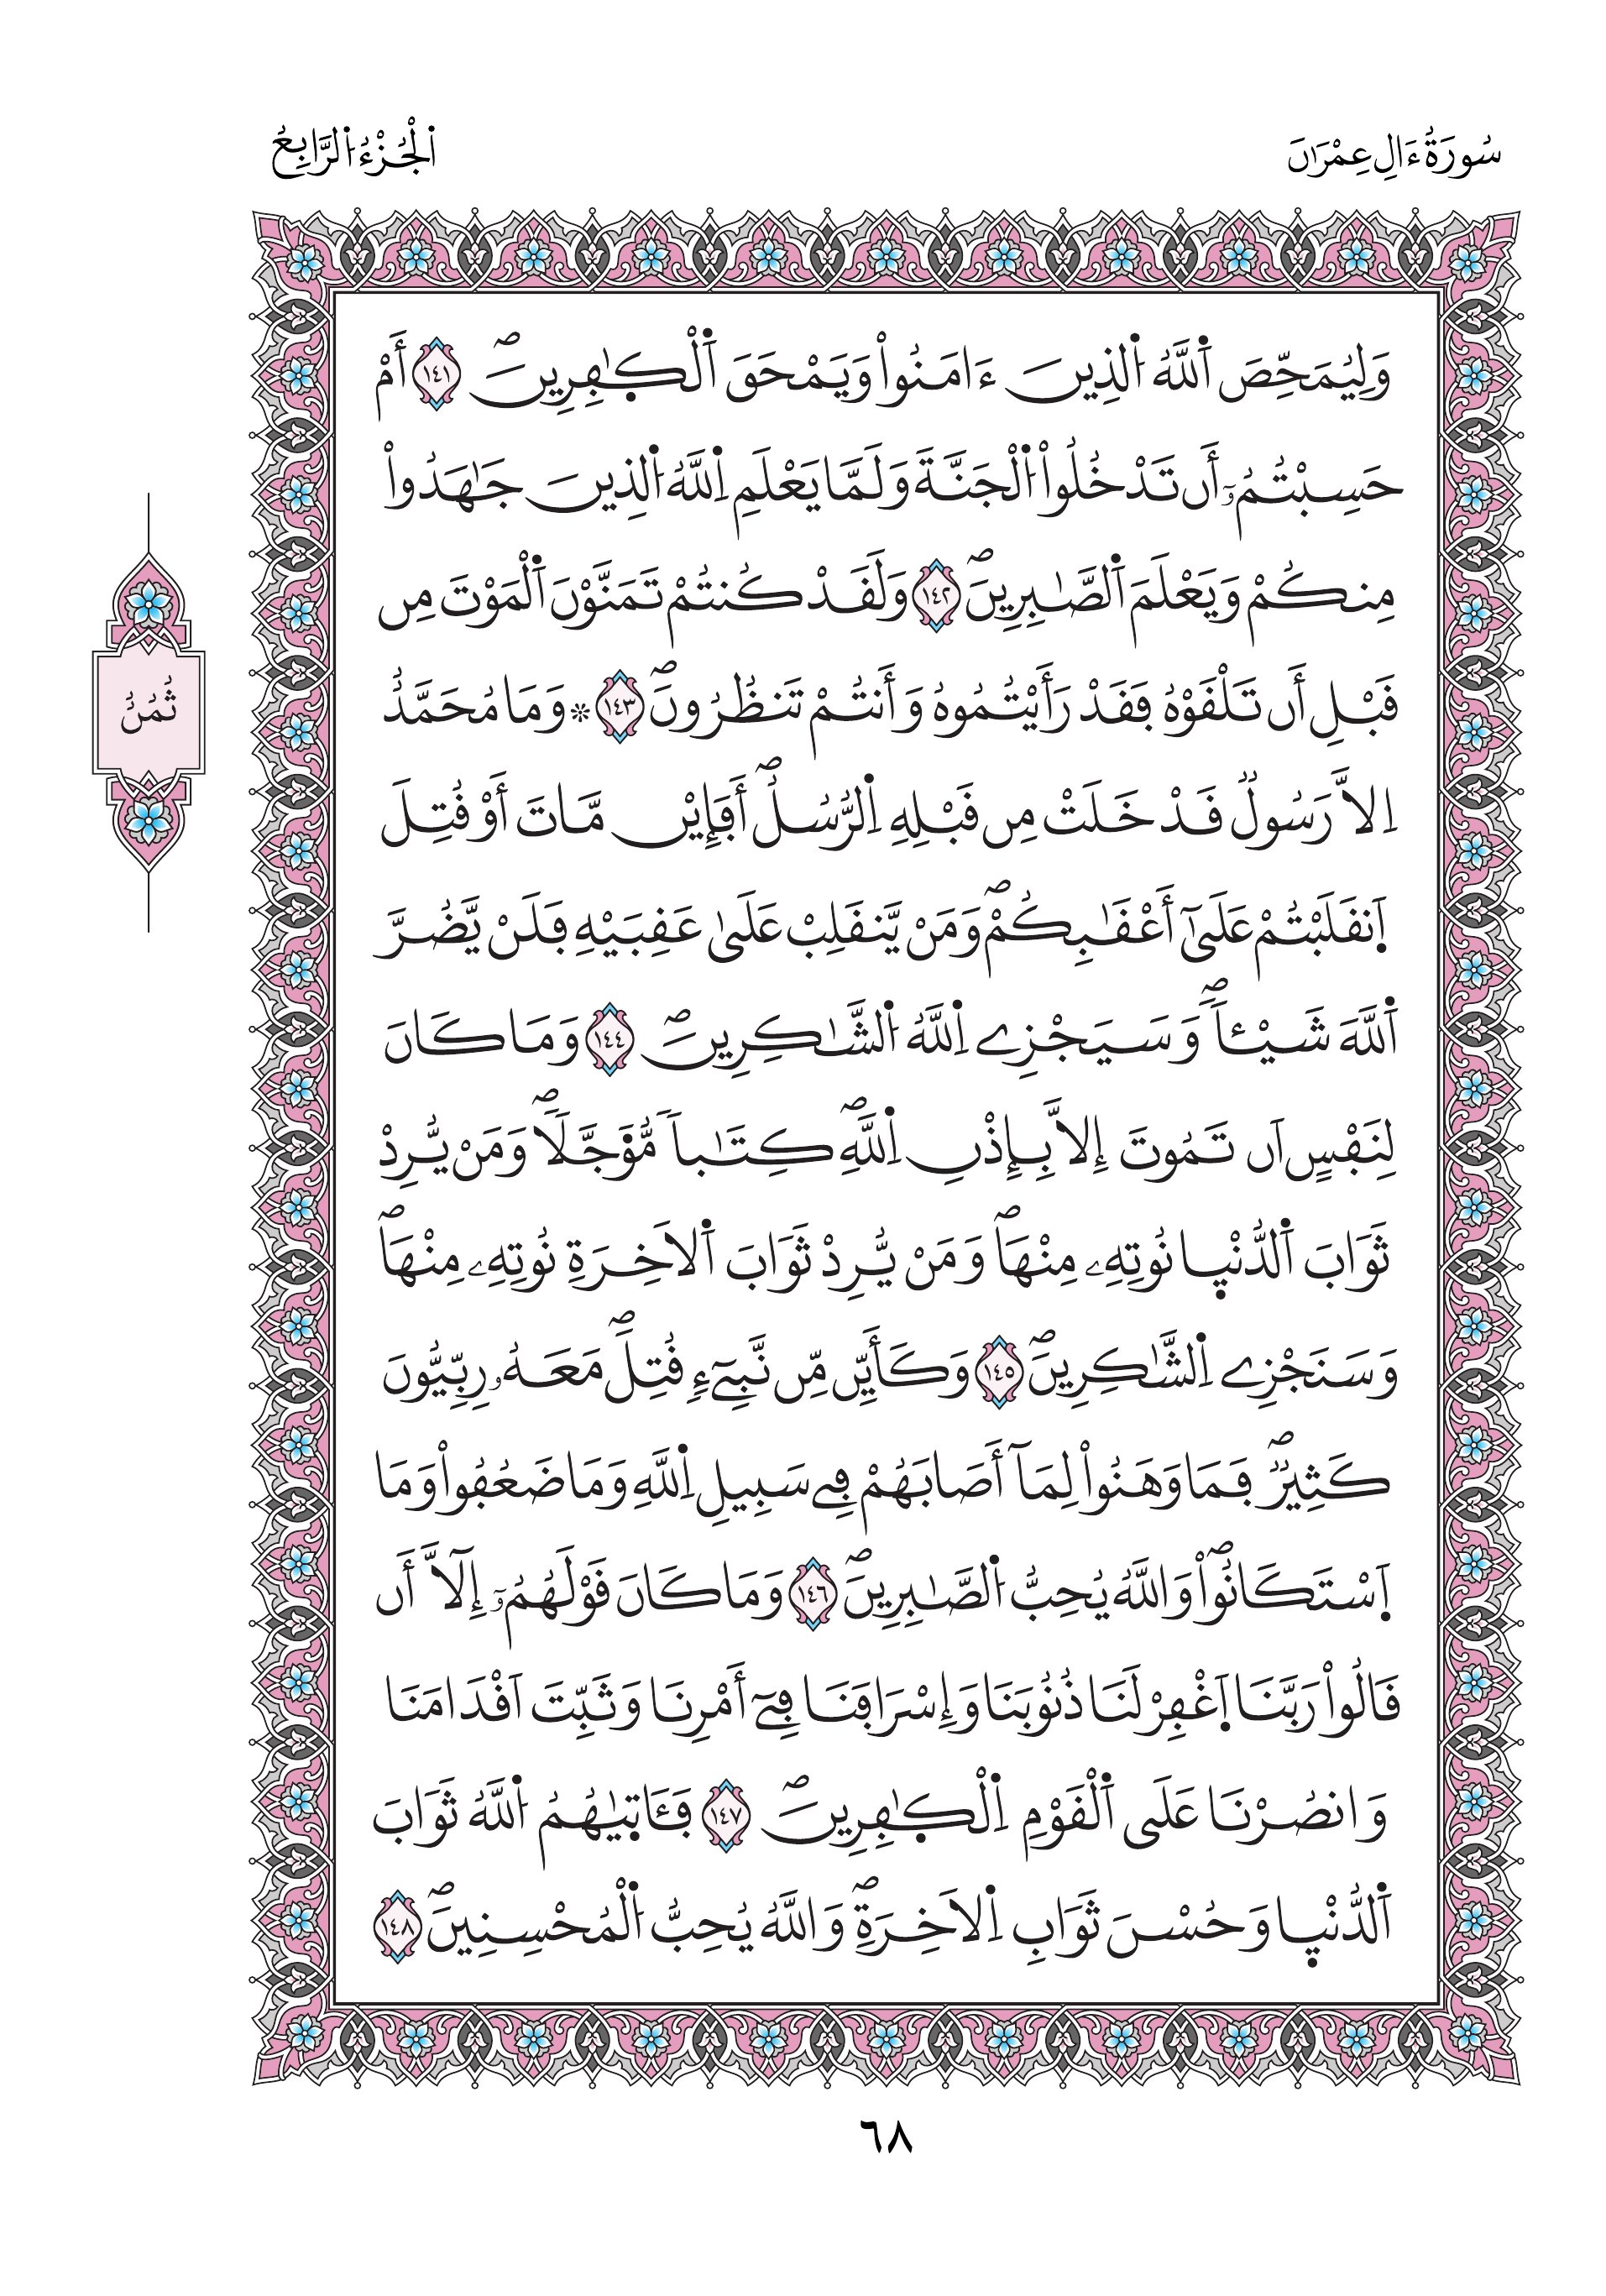 سُورَةُ ءَالِ عِمْرَٰنَ
اَ۬لْجُزْءُ اُ۬لرَّابِعُ
وَلِيُمَحِّصَ اَ۬للَّهُ اُ۬لذِينَ ءَامَنُواْ وَيَمْحَقَ اَ۬لْكٰ۪فِرِينَۖ ١٤١ أَمْ
حَسِبْتُمُۥٓ أَن تَدْخُلُواْ اُ۬لْجَنَّةَ وَلَمَّا يَعْلَمِ اِ۬للَّهُ اُ۬لذِينَ جَٰهَدُواْ
مِنكُمْ وَيَعْلَمَ اَ۬لصَّٰبِرِينَۖ ١٤٢ وَلَقَدْ كُنتُمْ تَمَنَّوْنَ اَ۬لْمَوْتَ مِن
قَبْلِ أَن تَلْقَوْهُ فَقَدْ رَأَيْتُمُوهُ وَأَنتُمْ تَنظُرُونَۖ ١٤٣ * وَمَا مُحَمَّدٌ
اِلَّا رَسُولٞ قَدْ خَلَتْ مِن قَبْلِهِ اِ۬لرُّسُلُۖ أَفَإِيْن مَّاتَ أَوْ قُتِلَ
اَ۪نقَلَبْتُمْ عَلَىٰٓ أَعْقَٰبِكُمْۖ وَمَنْ يَّنقَلِبْ عَلَىٰ عَقِبَيْهِ فَلَنْ يَّضُرَّ
اَ۬للَّهَ شَيْـٔاٗۖ وَسَيَجْزِے اِ۬للَّهُ اُ۬لشَّٰكِرِينَۖ ١٤٤ وَمَا كَانَ
لِنَفْسٍ اَن تَمُوتَ إِلَّا بِإِذْنِ اِ۬للَّهِۖ كِتَٰباٗ مُّؤَجَّلاٗۖ وَمَنْ يُّرِدْ
ثَوَابَ اَ۬لدُّنْي۪ا نُوتِهِۦ مِنْهَاۖ وَمَنْ يُّرِدْ ثَوَابَ اَ۬لَاخِرَةِ نُوتِهِۦ مِنْهَاۖ
وَسَنَجْزِے اِ۬لشَّٰكِرِينَۖ ١٤٥ وَكَأَيِّن مِّن نَّبِےٓءٖ قُتِلَۖ مَعَهُۥ رِبِّيُّونَ
كَثِيرٞۖ فَمَا وَهَنُواْ لِمَآ أَصَابَهُمْ فِے سَبِيلِ اِ۬للَّهِ وَمَا ضَعُفُواْ وَمَا
اَ۪سْتَكَانُواْۖ وَاللَّهُ يُحِبُّ اُ۬لصَّٰبِرِينَۖ ١٤٦ وَمَا كَانَ قَوْلَهُمُۥٓ إِلَّآ أَن
قَالُواْ رَبَّنَا اَ۪غْفِرْ لَنَا ذُنُوبَنَا وَإِسْرَافَنَا فِےٓ أَمْرِنَا وَثَبِّتَ اَقْدَامَنَا
وَانصُرْنَا عَلَى اَ۬لْقَوْمِ اِ۬لْكٰ۪فِرِينَۖ ١٤٧ فَـَٔات۪يٰهُمُ اُ۬للَّهُ ثَوَابَ
اَ۬لدُّنْي۪ا وَحُسْنَ ثَوَابِ اِ۬لَاخِرَةِۖ وَاللَّهُ يُحِبُّ اُ۬لْمُحْسِنِينَۖ ١٤٨
ثُمُنُ
٦٨